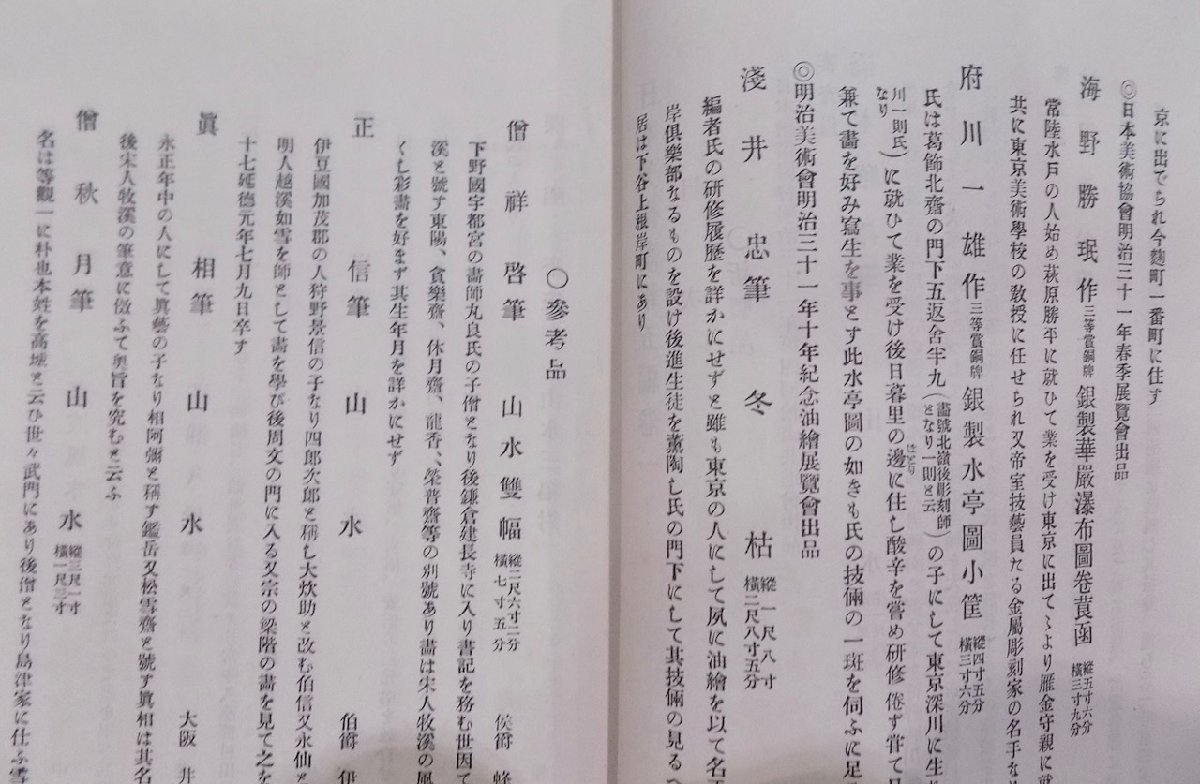 京に出でられ今麹町一番町に住す
◎日本美術協會明治三十一年春季展覽會出品
海野勝珉作 三等賞銅牌 銀製華嚴瀑布圖卷莨函 縱五寸六分 橫三寸九分
常陸水戸の人始め萩原勝平に就ひて業を受け東京に出てゝより雁金守親に就
共に東京美術學校の敎授に任せられ又帝室技藝員たる金屬彫刻家の名手な
府川一雄作 三等賞銅牌 銀製水亭圖小筐 縱四寸五分 橫三寸六分
氏は葛飾北齋の門下五返舍半九(畵號北嶺後彫刻師となり一則と云)の子にして東京深川に生
川一則氏なり)に就ひて業を受け後日暮里の邊に住し酸辛を甞め研修倦ず甞て凡
兼て畵を好み寫生を事とす此水亭圖の如きも氏の技倆の一斑を伺ふに足
◎明治美術會明治三十一年十年紀念油繪展覽會出品
淺井忠筆 冬枯 縱一尺八寸 橫二尺八寸五分
編者氏の研修履歷を詳かにせずと雖も東京の人にして夙に油繪を以て名
岸俱樂部なるものを設け後進生徒を薫陶し氏の門下にして其技倆の見るへ
居は下谷上根岸町にあり
〇參考品
僧祥啓筆 山水雙幅 縱二尺六寸二分 橫七寸五分 侯爵 蜂
下野國宇都宮の畵師丸良氏の子僧となり後鎌倉建長寺に入り書記を務む世因て
溪と號す東陽、貪樂齋、休月齋、龍香、榮普齋等の別號あり畵は宋人牧溪の風
くし彩畵を好まず其生年月を詳かにせず
正信筆 山水 伯爵 伊
伊豆國加茂郡の人狩野景信の子なり四郎次郎と稱し大炊助と改む伯信又永仙と
明人越溪如雪を師として畵を學び後周文の門に入る又宗の梁階の畵を見て之を
十七延德元年七月九日卒す
眞相筆 山水 大阪 井
永正年中の人にして眞藝の子なり相阿彌と稱す鑑岳又松雪齋と號す眞相は其名
後宋人牧溪の筆意に倣ふて奥旨を究むと云ふ
僧秋月筆 山水 縱三尺一寸 橫一尺三寸
名は等觀一に朴也本姓を高城と云ひ世々武門にあり後僧となり島津家に仕ふ雪